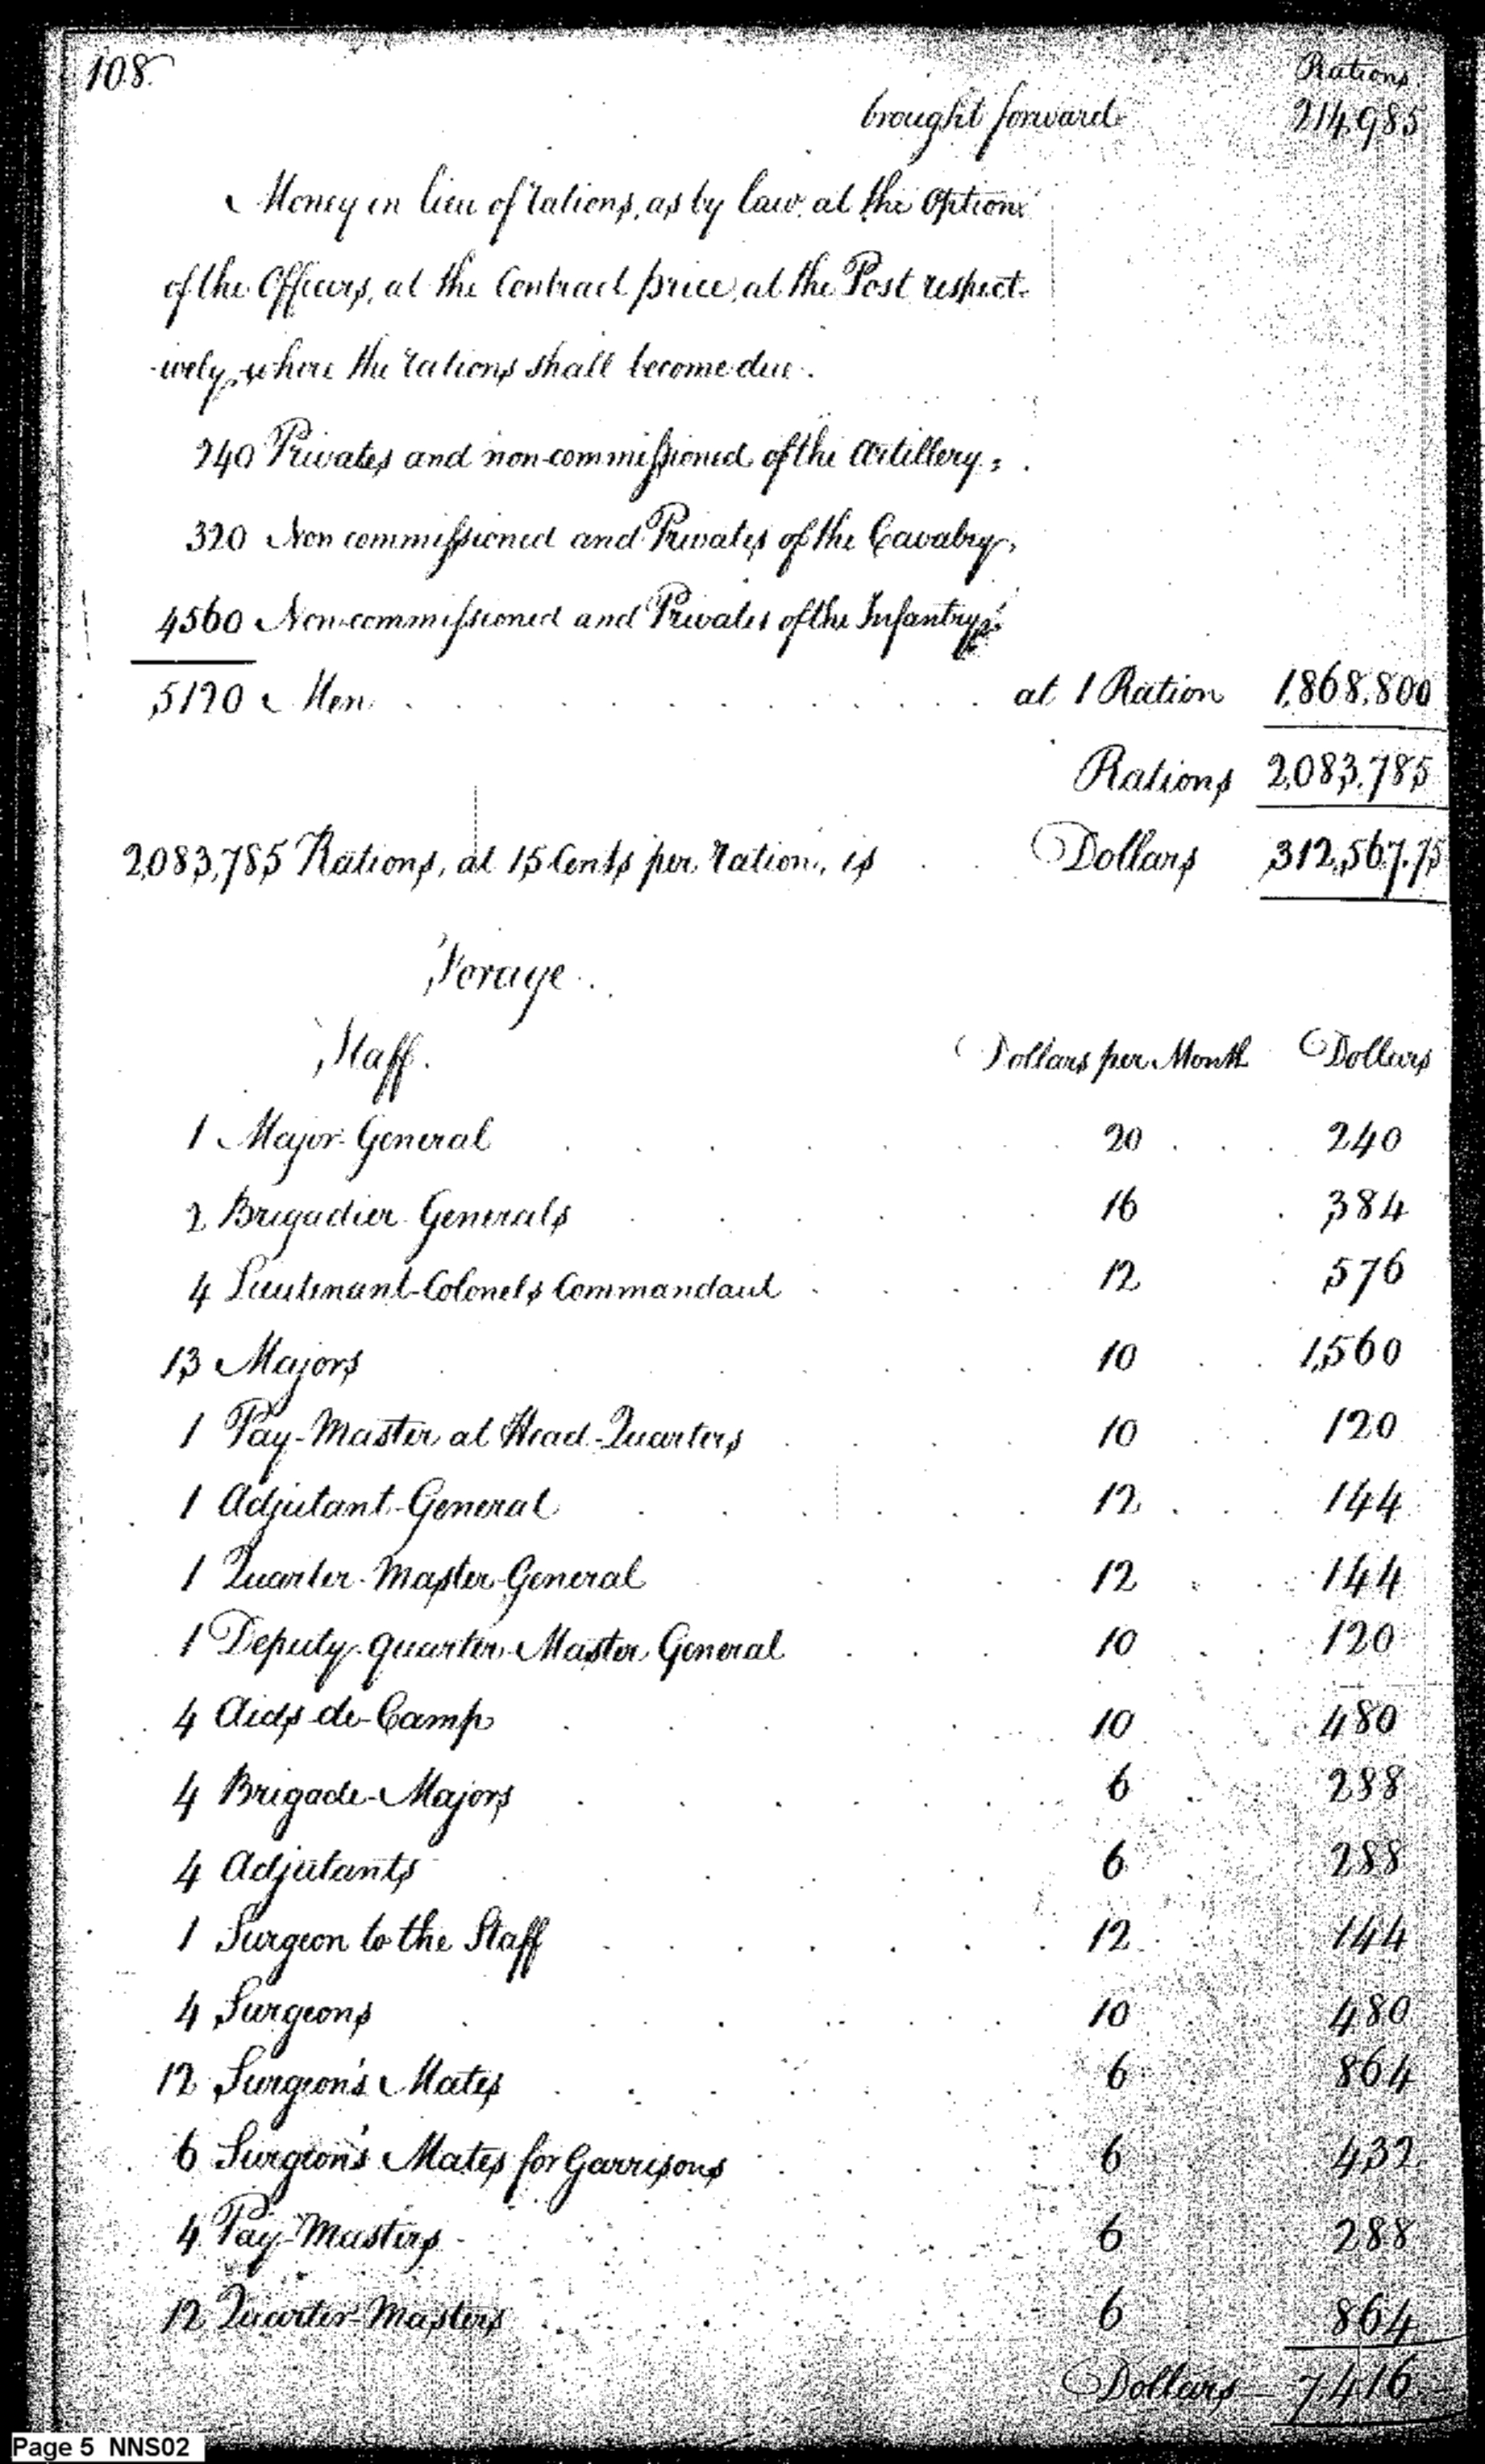 108.
Rations.
brought forward 214,985
Money in lieu of rations, as by law, at the Option
of the Officers, at the Contract price, at the Post respect-
-ively, where the rations shall become due.
240 Privates and non-commissioned of the Artillery,
320 Non commissioned and Privates of the Cavalry,
4560 Non-commissioned and Privates of the Infantry,
5120 Men . . . . . . . . . . . . at 1 Ration 1,868,800
Rations 2,083,785
2,083,785 Rations, at 15 Cents per ration, is . . Dollars 312,567.75
Forage.
Staff. Dollars per Month Dollars
1 Major-General 20 240
2 Brigadier Generals 16 384
4 Lieutenant-Colonels Commandant 12 576
13 Majors 10 1,560
1 Pay-Master at Head-Quarters 10 120
1 Adjutant-General 12 144
1 Quarter-Master-General 12 144
1 Deputy-quarter-Master General 10 120
4 Aids-de-Camp 10 480
4 Brigade-Majors 6 288
4 Adjutants 6 288
1 Surgeon to the Staff 12 144
4 Surgeons 10 480
12 Surgeon's Mates 6 864
6 Surgeon's Mates for Garrisons 6 432
4 Pay-Masters 6 288
12 Quarter-Masters 6 864
Dollars 7,416
Page 5 NNS02